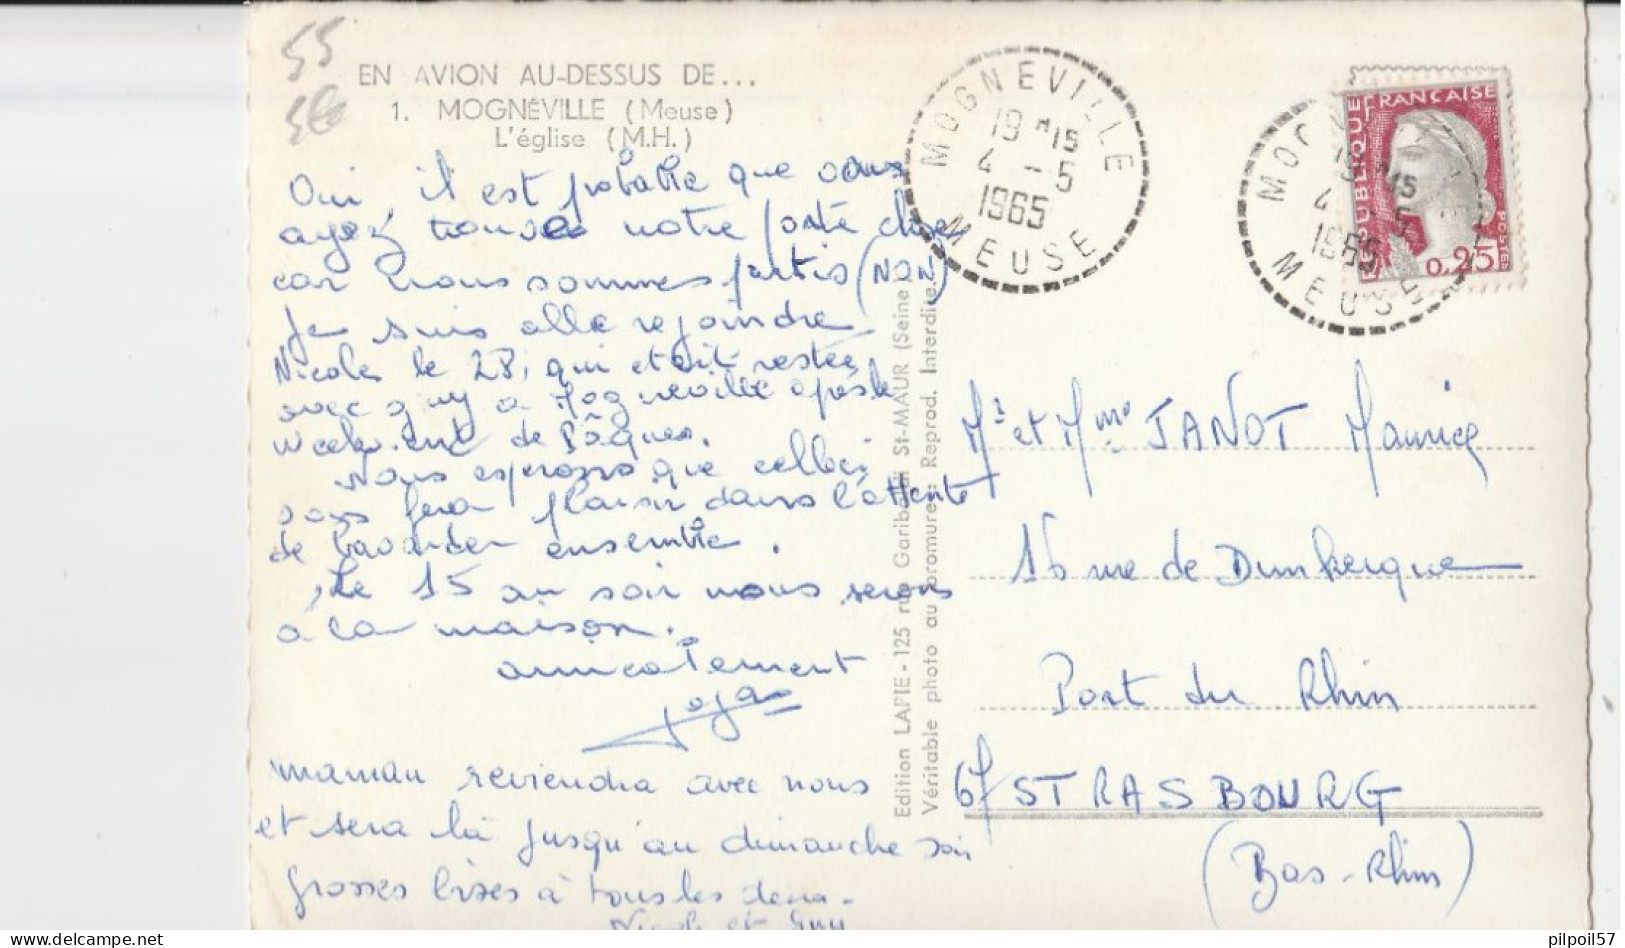 55
EN AVION AU-DESSUS DE...
1. MOGNÉVILLE (Meuse)
L'église (M.H.)
Oui, il est probable que vous
ayez trouvé notre porte close
car nous sommes partis (NON)
Je suis allé rejoindre
Nicole le 28, qui etait restée
avec guy a Mogneville après le
week-end de Pâques.
Nous esperons que celle ci
vous fera plaisir dans l'attente
de bavarder ensemble.
Le 15 au soir nous serons
à la maison.
amicalement
maman reviendra avec nous
et sera là jusqu'au dimanche soir
grosses bises à tous les deux.
Nicole et Guy
Edition LAPIE - 125 rue Garibaldi St-MAUR (Seine)
Véritable photo au bromure - Reprod. Interdite.
MOGNEVILLE
19 H 15
4 - 5
1965
MEUSE
MOG
19 H 15
4 - 5
1965
MEUSE
REPUBLIQUE FRANÇAISE
POSTES
0,25
Mr et Mme JANOT Maurice
16 rue de Dunkerque
Port du Rhin
67 STRASBOURG
(Bas-Rhin)
pilpoil57